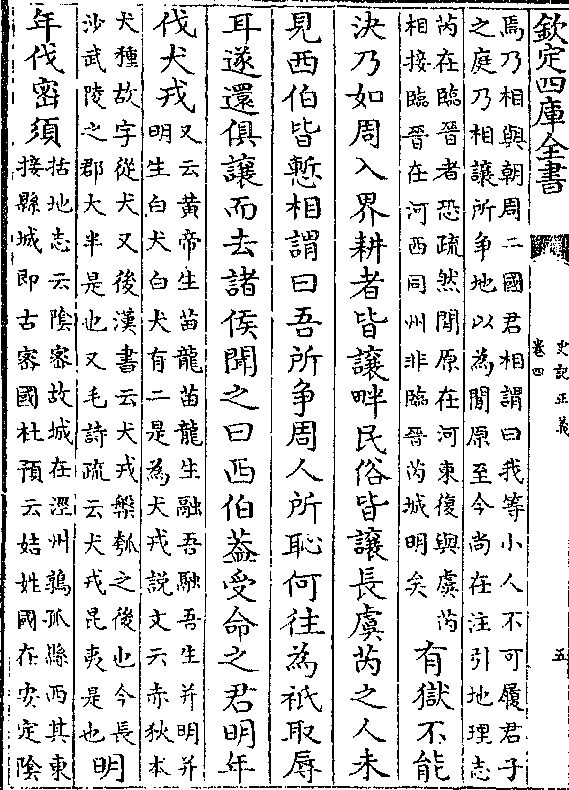 欽定四庫全書
史記正義
卷四
五
焉乃相與朝周二國君相謂曰我等小人不可履君子
之庭乃相讓所爭地以為閒原至今尚在注引地理志
芮在臨晉者恐疏然閒原在河東復與虞芮
相接臨晉在河西同州非臨晉芮城明矣
有獄不能
決乃如周入界耕者皆讓畔民俗皆讓長虞芮之人未
見西伯皆慙相謂曰吾所爭周人所恥何往為祇取辱
耳遂還俱讓而去諸侯聞之曰西伯葢受命之君明年
伐犬戎
又云黃帝生苗龍苗龍生融吾融吾生并明并
明生白犬白犬有二是為犬戎説文云赤狄本
犬種故字從犬又後漢書云犬戎槃瓠之後也今長
沙武陵之郡大半是也又毛詩疏云犬戎昆夷是也
明
年伐密須
括地志云陰密故城在涇州鶉孤縣西其東
接縣城即古密國杜預云姞姓國在安定陰